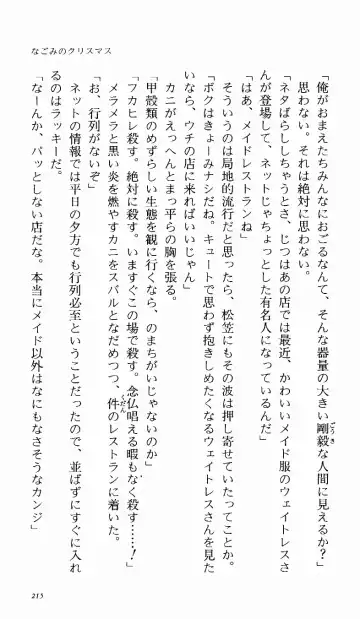 なごみのクリスマス
「俺がおまえたちみんなにおごるなんて、そんな器量の大きい剛毅な人間に見えるか?」
思わない。それは絶対に思わない。
「ネタばらししちゃうとさ、じつはあの店では最近、かわいいメイド服のウェイトレスさ
んが登場して、ネットじゃちょっとした有名人になっているんだ」
「はあ、メイドレストランね」
そういうのは局地的流行だと思ったら、松笠にもその波は押し寄せていたってことか。
「ボクはきょーみナシだね。キュートで思わず抱きしめたくなるウェイトレスさんを見た
いなら、ウチの店に来ればいいじゃん」
カニがえっへんとまっ平らの胸を張る。
「甲殻類のめずらしい生態を観に行くなら、のまちがいじゃないのか」
「フカヒレ殺す。絶対に殺す。いますぐこの場で殺す。念仏唱える暇もなく殺す……!」
メラメラと黒い炎を燃やすカニをスバルとなだめつつ、件のレストランに着いた。
「お、行列がないぞ」
ネットの情報では平日の夕方でも行列必至ということだったので、並ばずにすぐに入れ
るのはラッキーだ。
「なーんか、パッとしない店だな。本当にメイド以外はなにもなさそうなカンジ」
215